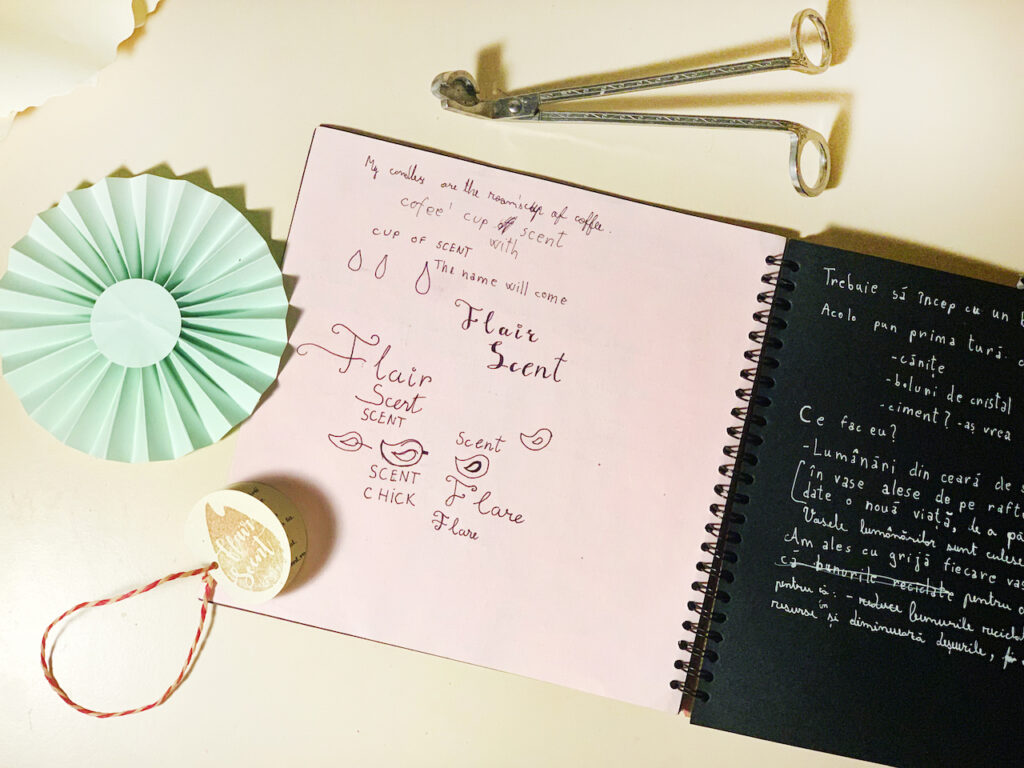 My candles are the room's cup of coffee.
cofee' cup of scent
with
CUP OF SCENT
The name will come
Flair
Scent
Flair
Scent
SCENT
Scent
SCENT
CHICK
Flare
Flare
Flair
Scent
Trebuie să încep cu un
Acolo pun prima tură.
-cănițe
-boluri de cristal
-ciment? -aș vrea
Ce fac eu?
-Lumânări din ceară de
în vase alese de pe raftu
date o nouă viață, de a
Vasele lumânărilor sunt culese
Am ales cu grijă fiecare
că bunurile reciclate pentru
pentru că: - reduce bunurile
resurse în și diminuară deșeurile,